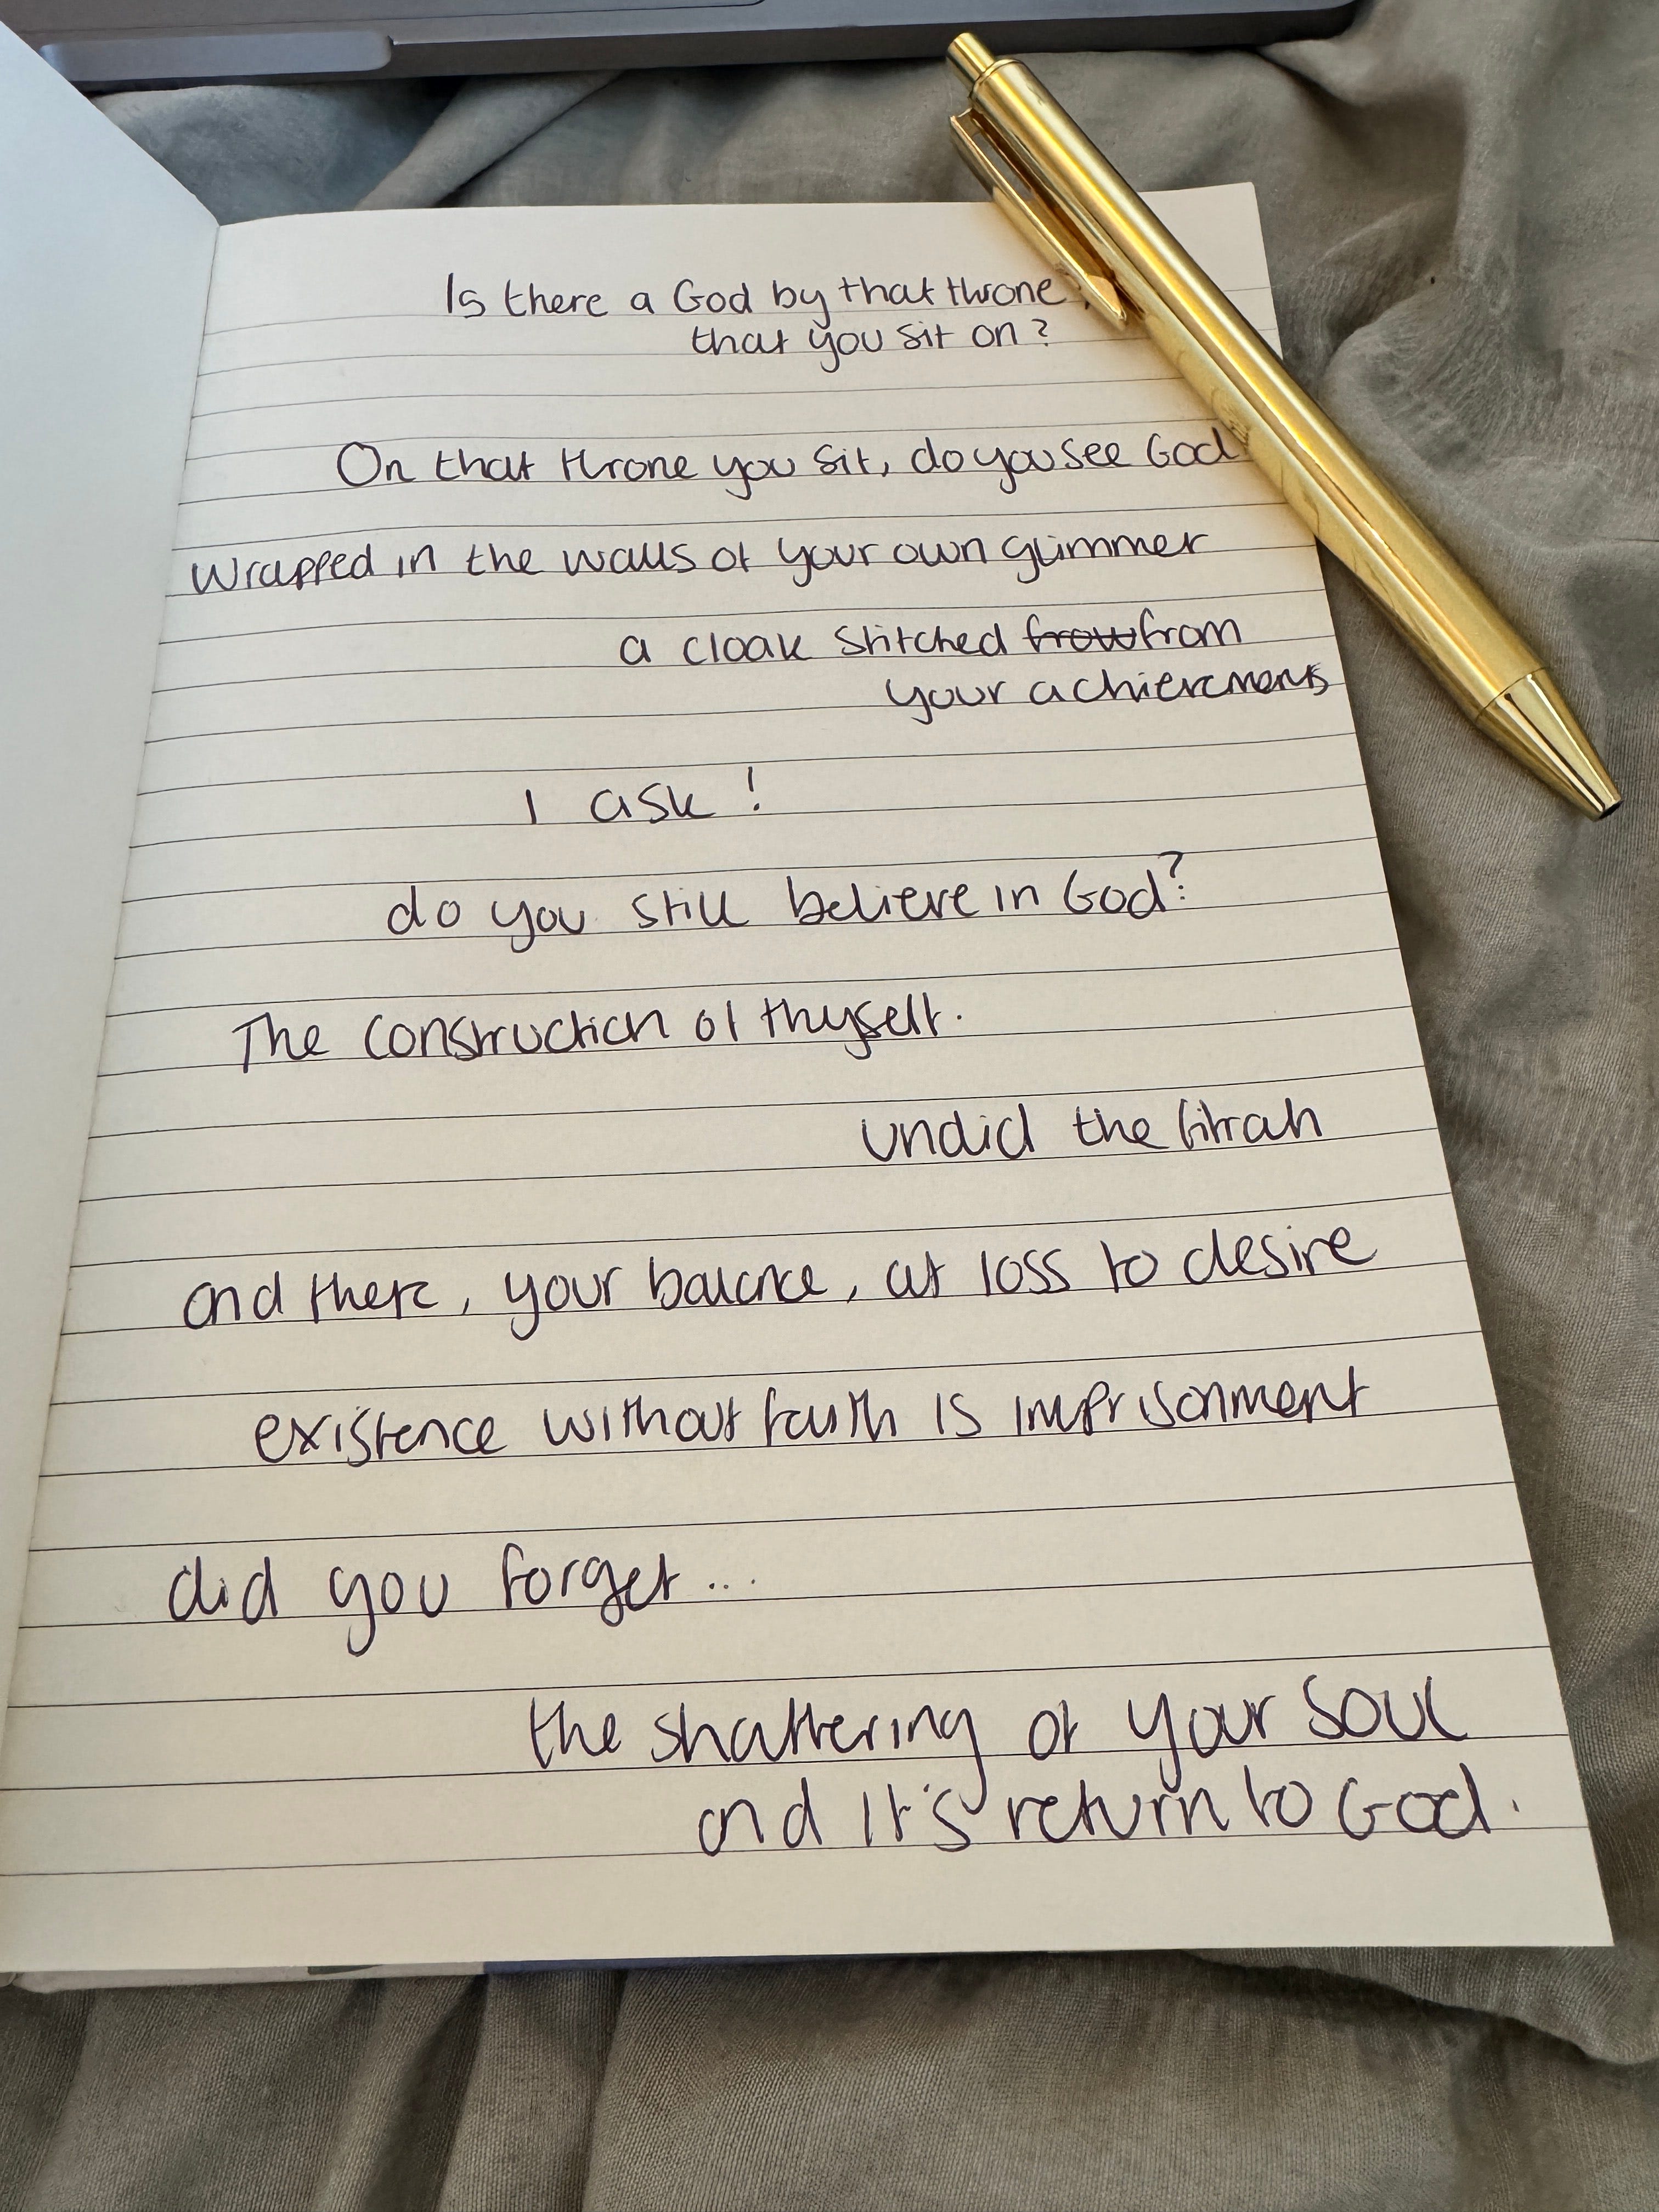 Is there a God by that throne
that you sit on?
On that throne you sit, do you see God
wrapped in the walls of your own glimmer
a cloak stitched from from
your achievements
I ask!
do you still believe in God?
The construction of thyself.
undid the fitrah
and there, your balance, at loss to desire
existence without faith is imprisonment
did you forget...
the shattering of your soul
and it's return to God.